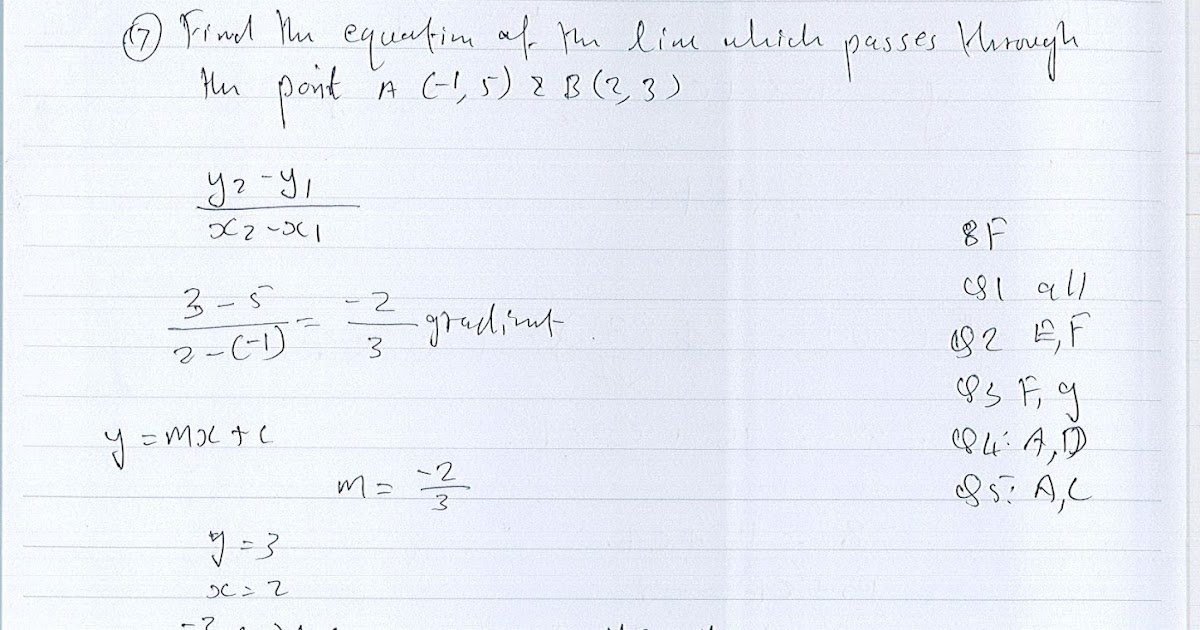 ⑦ Find the equation of the line which passes through
the point A (-1, 5) & B (2, 3)
y2 - y1
x2 - x1
3 - 5
2 - (-1)
= -2
3
gradient
y = mx + c
m = -2
3
y = 3
x = 2
8F
Q1 all
Q2 E, F
Q3 F, g
Q4: A, D
Q5: A, C